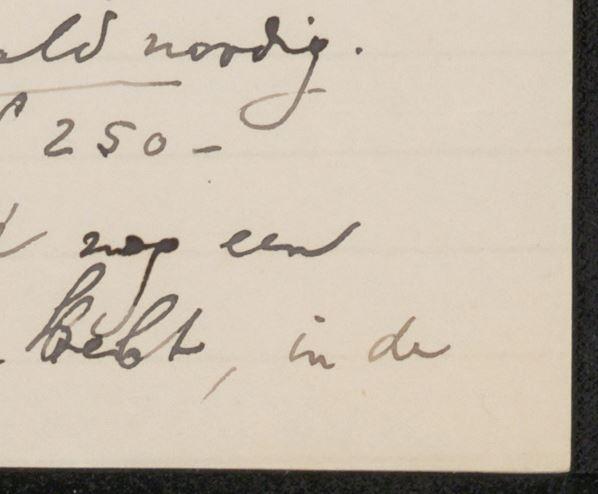 ld noodig.
f 250-
nog een
hebt, in de